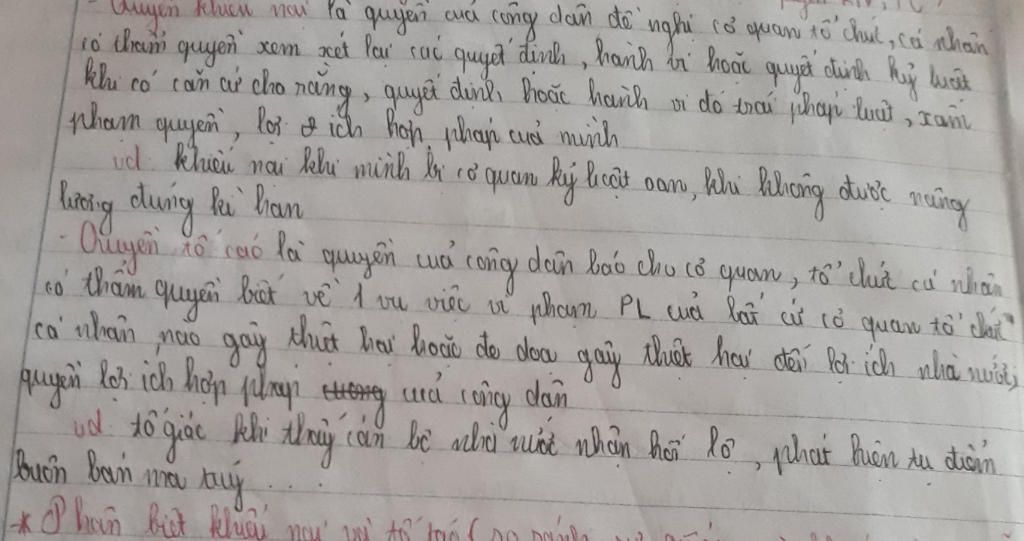 - Quyền khiếu nại là quyền của công dân đề nghị cơ quan tổ chức, cá nhân
có thẩm quyền xem xét lại các quyết định, hành vi hoặc quyết định kỷ luật
khi có căn cứ cho rằng, quyết định hoặc hành vi đó trái pháp luật, xâm
phạm quyền, lợi ích hợp pháp của mình
vd khiếu nại khi mình bị cơ quan kỷ luật oan, khi không được nâng
lương đúng kì hạn
- Quyền tố cáo là quyền của công dân báo cho cơ quan, tổ chức cá nhân
có thẩm quyền biết về 1 vụ việc vi phạm PL của bất cứ cơ quan tổ chức
cá nhân nào gây thiệt hại hoặc đe dọa gây thiệt hại đến lợi ích nhà nước,
quyền lợi ích hợp pháp của công dân
vd tố giác khi thấy cán bộ nhà nước nhận hối lộ, phát hiện tụ điểm
buôn bán ma túy . . . .
* Phân biệt khiếu nại và tố cáo (